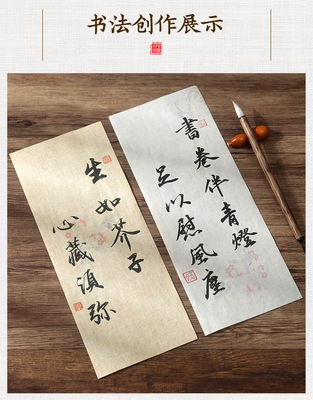 书法创作展示
生如芥子
心藏須弥
書卷伴青燈
足以慰風塵